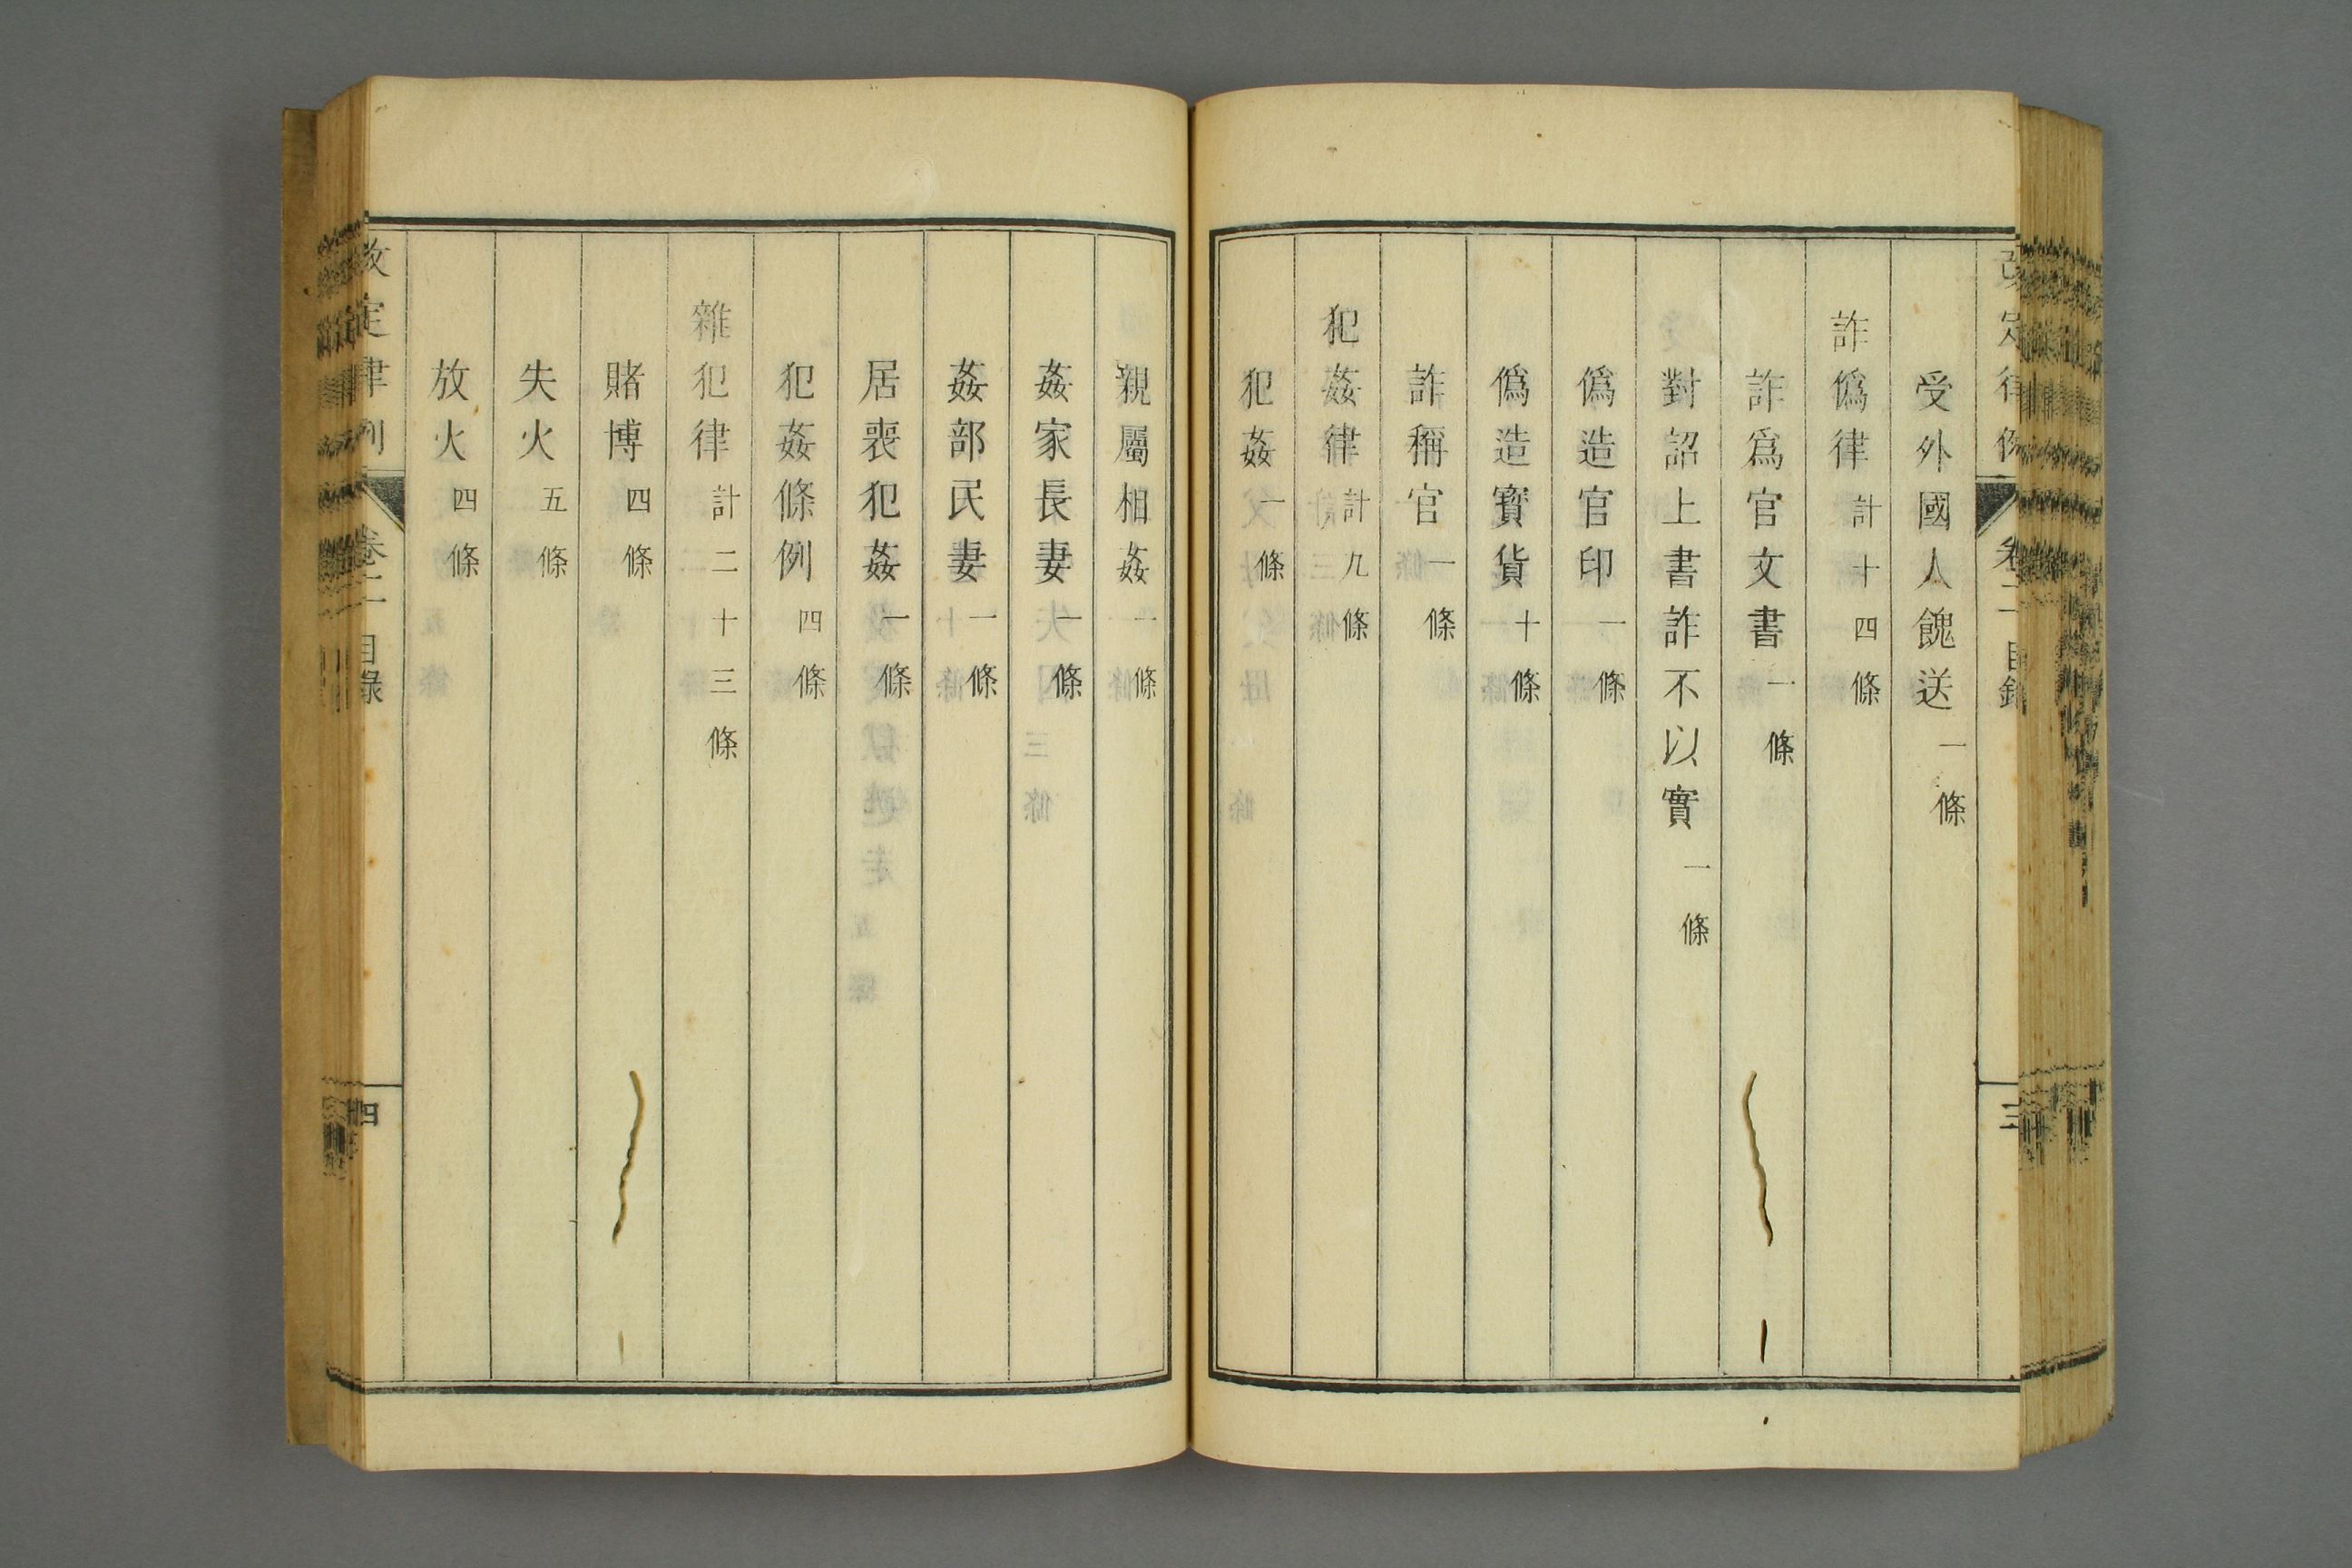 改定律例 卷二 目錄 三
受外國人餽送 一條
詐僞律 計十四條
詐爲官文書 一條
對詔上書詐不以實 一條
僞造官印 一條
僞造寶貨 十條
詐稱官 一條
犯姦律 計九條
犯姦 一條
親屬相姦 一條
姦家長妻 一條
姦部民妻 一條
居喪犯姦 一條
犯姦條例 四條
雜犯律 計二十三條
賭博 四條
失火 五條
放火 四條
改定律例 卷二 目錄 四